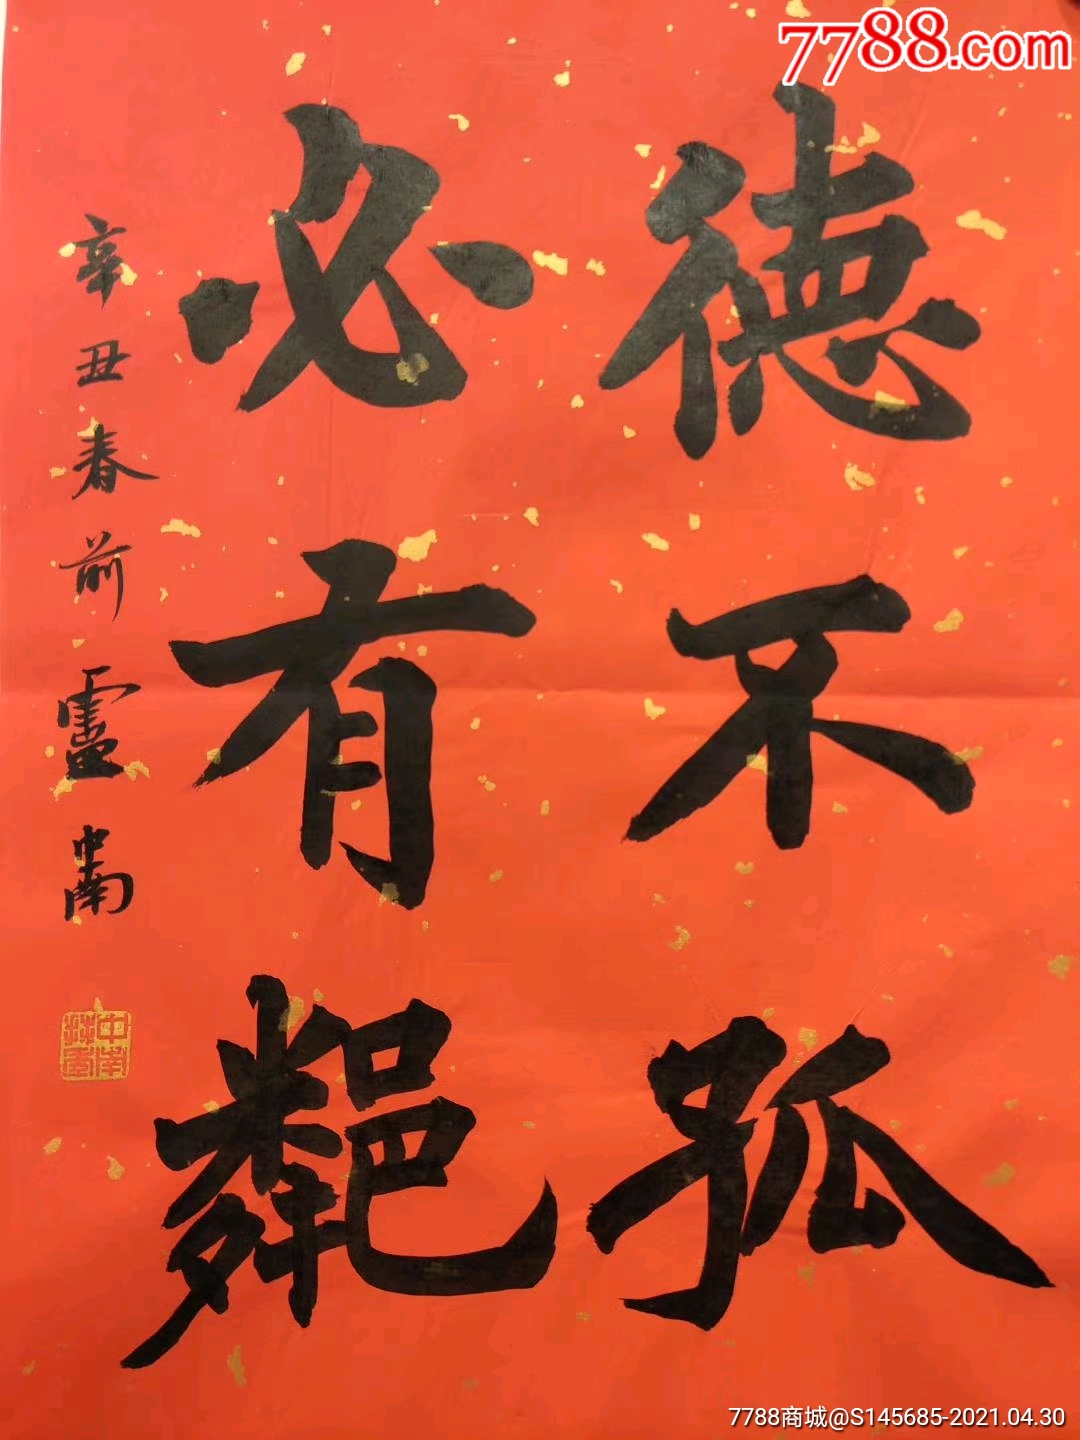 7788.com
德不孤
必有鄰
辛丑春前盧中南
7788商城@S145685-2021.04.30